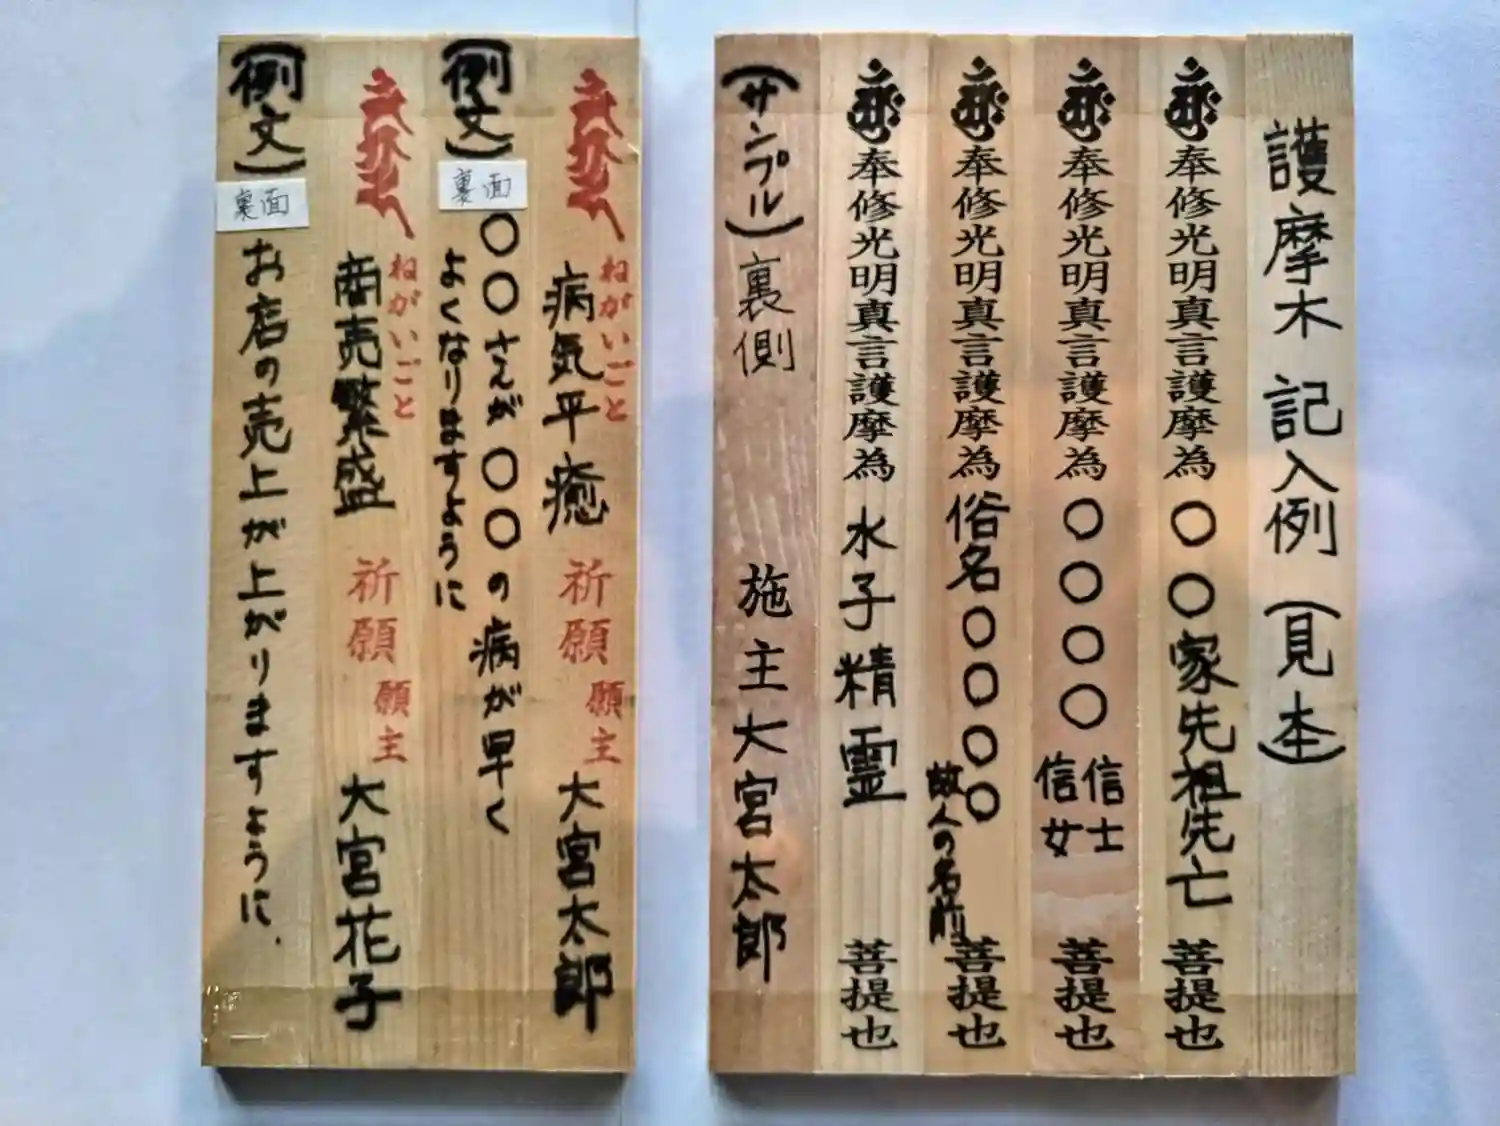 護摩木 記入例(見本)
奉修光明真言護摩為〇〇家先祖先亡菩提也
奉修光明真言護摩為〇〇〇〇信士信女菩提也
奉修光明真言護摩為俗名〇〇〇〇菩提也
故人の名前
奉修光明真言護摩為水子精霊菩提也
(サンプル)裏側 施主大宮太郎
ねがいごと
病気平癒 祈願 願主 大宮太郎
(例文)
裏面
〇〇さんが〇〇の病が早く
よくなりますように
ねがいごと
商売繁盛 祈願 願主 大宮花子
(例文)
裏面
お店の売上が上がりますように.